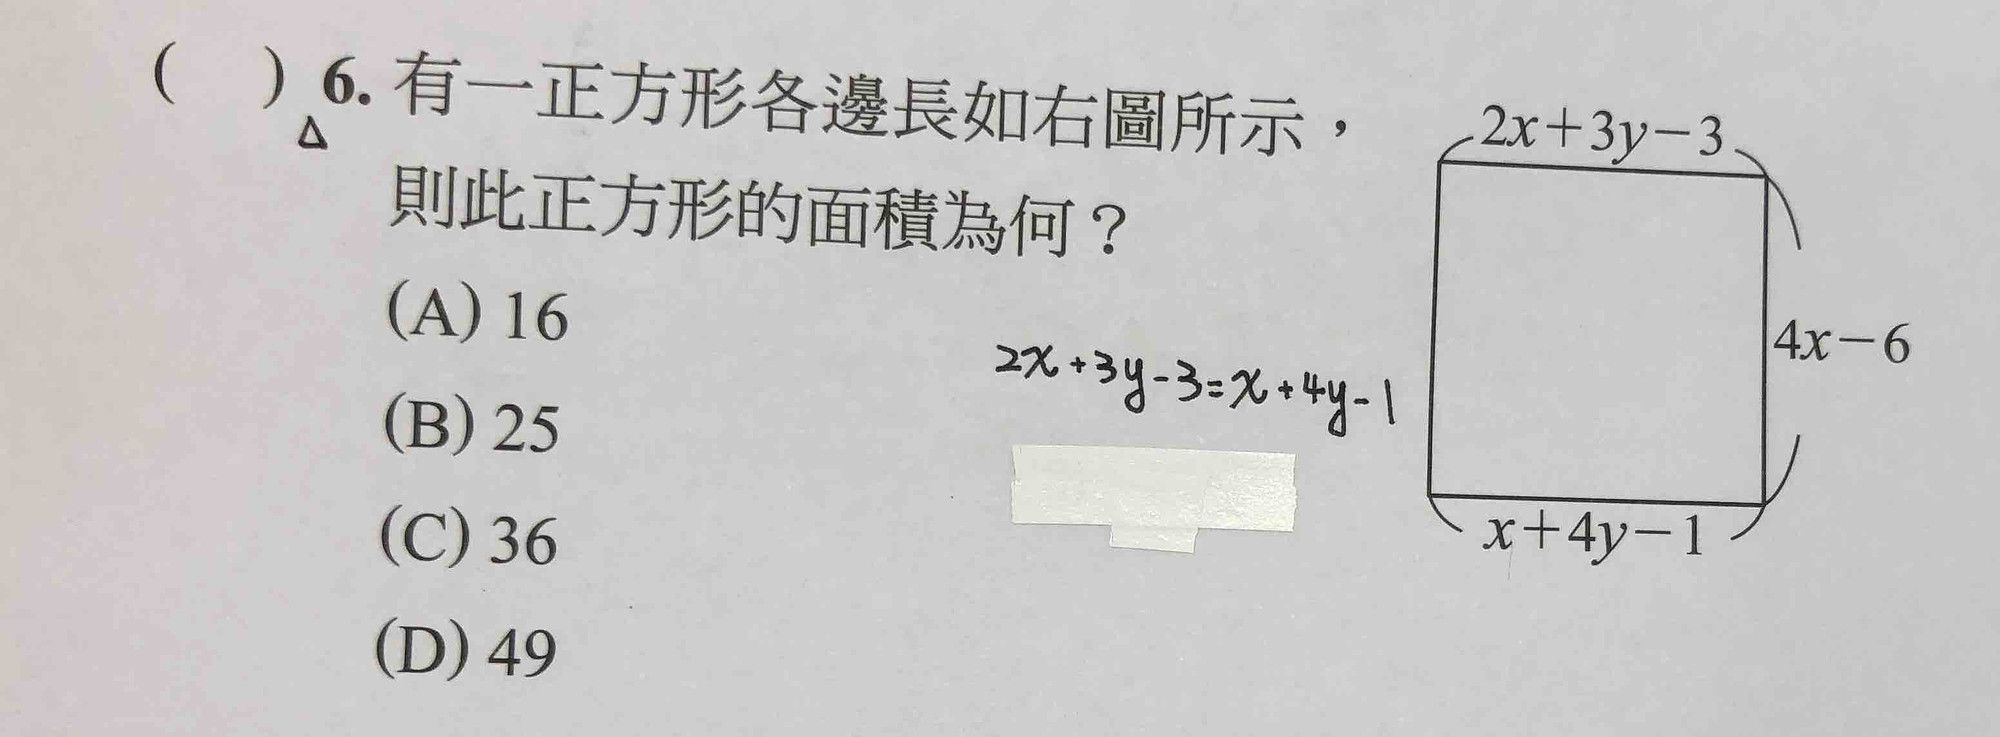 (　) 6. 有一正方形各邊長如右圖所示，
△
則此正方形的面積為何？
(A) 16
(B) 25
(C) 36
(D) 49
2x+3y-3=x+4y-1
2x+3y−3
4x−6
x+4y−1